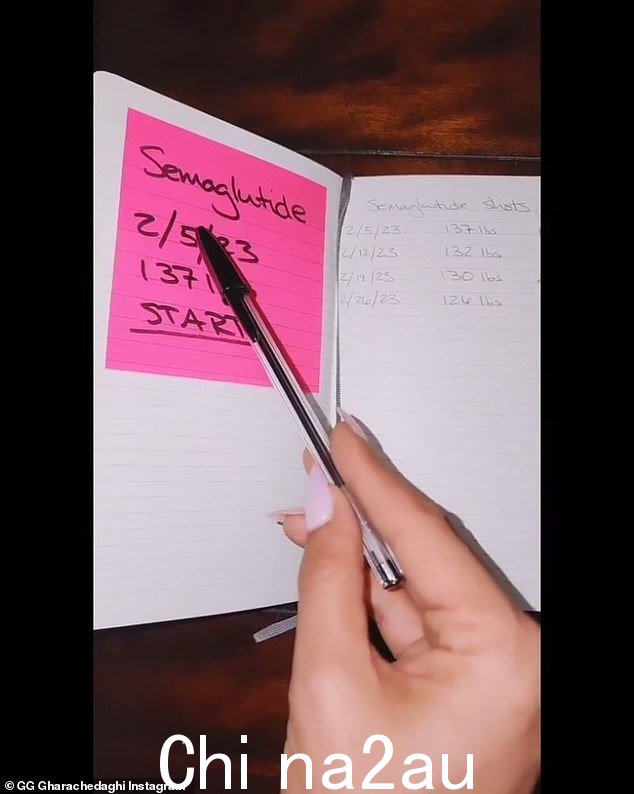 Semaglutide
2/5/23
137 l
START
Semaglutide shots
2/5/23 137 lbs
2/12/23 132 lbs
2/19/23 130 lbs
2/26/23 126 lbs
© GG Gharachedaghi Instagram
Chi na2au